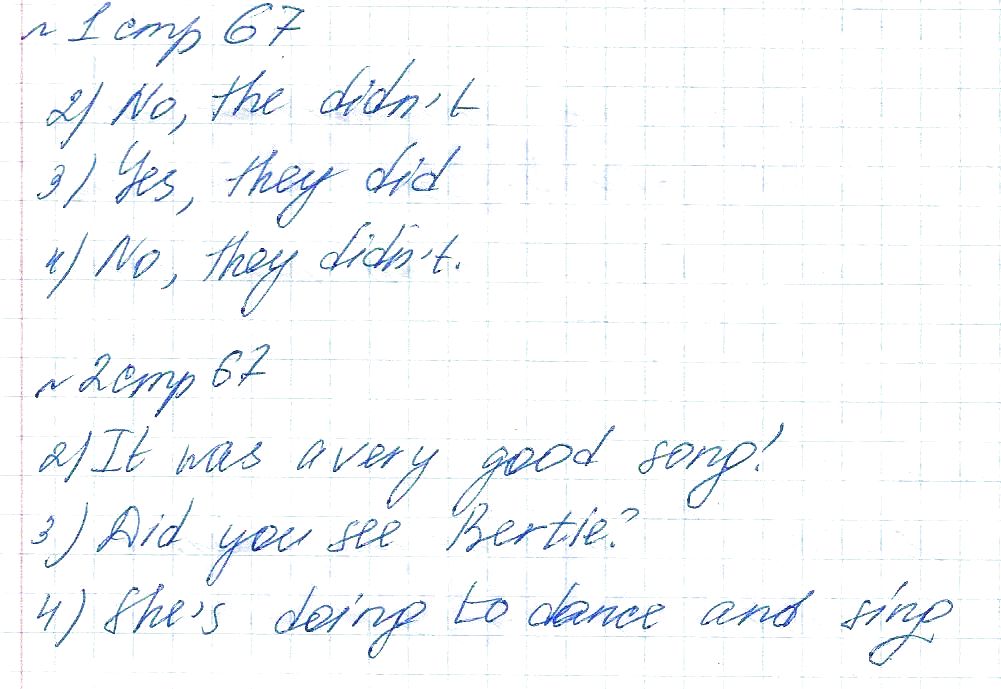 ~ 1 стр 67
2) No, the didn't
3) Yes, they did
4) No, they didn't.
~ 2 стр 67
2) It was a very good song!
3) Did you see Bertie?
4) She's doing to dance and sing